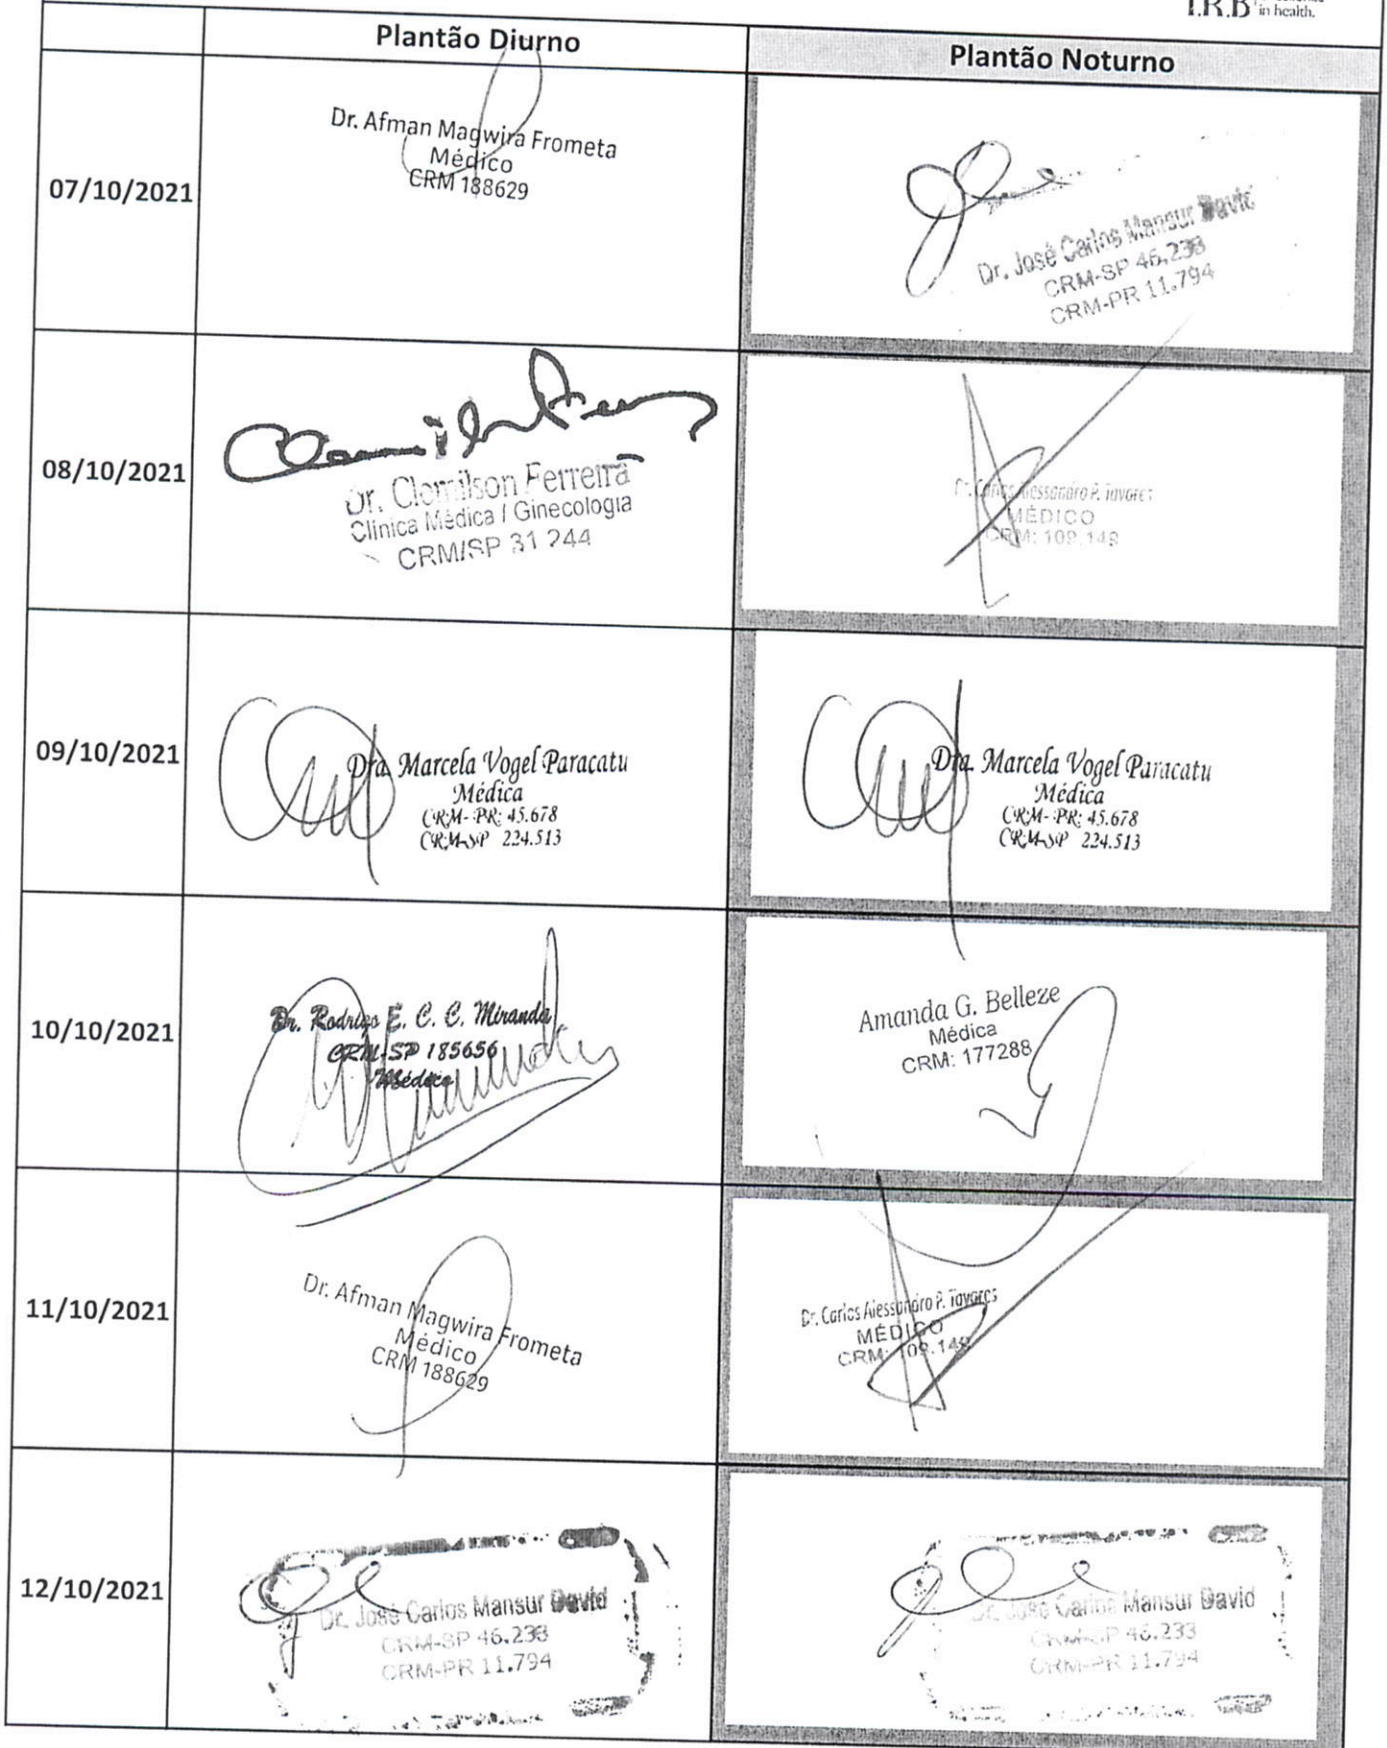 I.R.B in health.
Plantão Diurno
Plantão Noturno
07/10/2021
Dr. Afman Magwira Frometa
Médico
CRM 188629
Dr. José Carlos Mansur David
CRM-SP 46.233
CRM-PR 11.794
08/10/2021
Dr. Clomilson Ferreira
Clínica Médica / Ginecologia
CRM/SP 31 244
Dr. Carlos Alessandro P. Tavares
MÉDICO
CRM: 109.149
09/10/2021
Dra. Marcela Vogel Paracatu
Médica
CRM-PR: 45.678
CRM-SP 224.513
Dra. Marcela Vogel Paracatu
Médica
CRM-PR: 45.678
CRM-SP 224.513
10/10/2021
Dr. Rodrigo E. C. C. Miranda
CRM-SP 185656
Médico
Amanda G. Belleze
Médica
CRM: 177288
11/10/2021
Dr. Afman Magwira Frometa
Médico
CRM 188629
Dr. Carlos Alessandro P. Tavares
MÉDICO
CRM: 109.149
12/10/2021
Dr. José Carlos Mansur David
CRM-SP 46.233
CRM-PR 11.794
Dr. José Carlos Mansur David
CRM-SP 46.233
CRM-PR 11.794